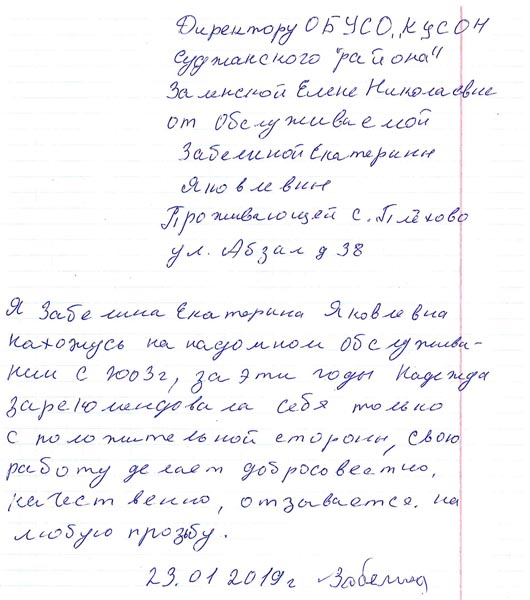 Директору ОБУСО, КЦСОН
Суджанского "района"
Заленской Елене Николаевне
от Обслуживаемой
Забелиной Екатерины
Яковлевны
Проживающей с. Плёхово
ул. Абзал д 38
Я Забелина Екатерина Яковлевна
нахожусь на надомном обслужива-
нии с 2003г, за эти годы Надежда
зарекомендовала себя только
с положительной стороны, свою
работу делает добросовестно,
качественно, отзывается на
любую прозьбу.
23.01 2019г Забелина